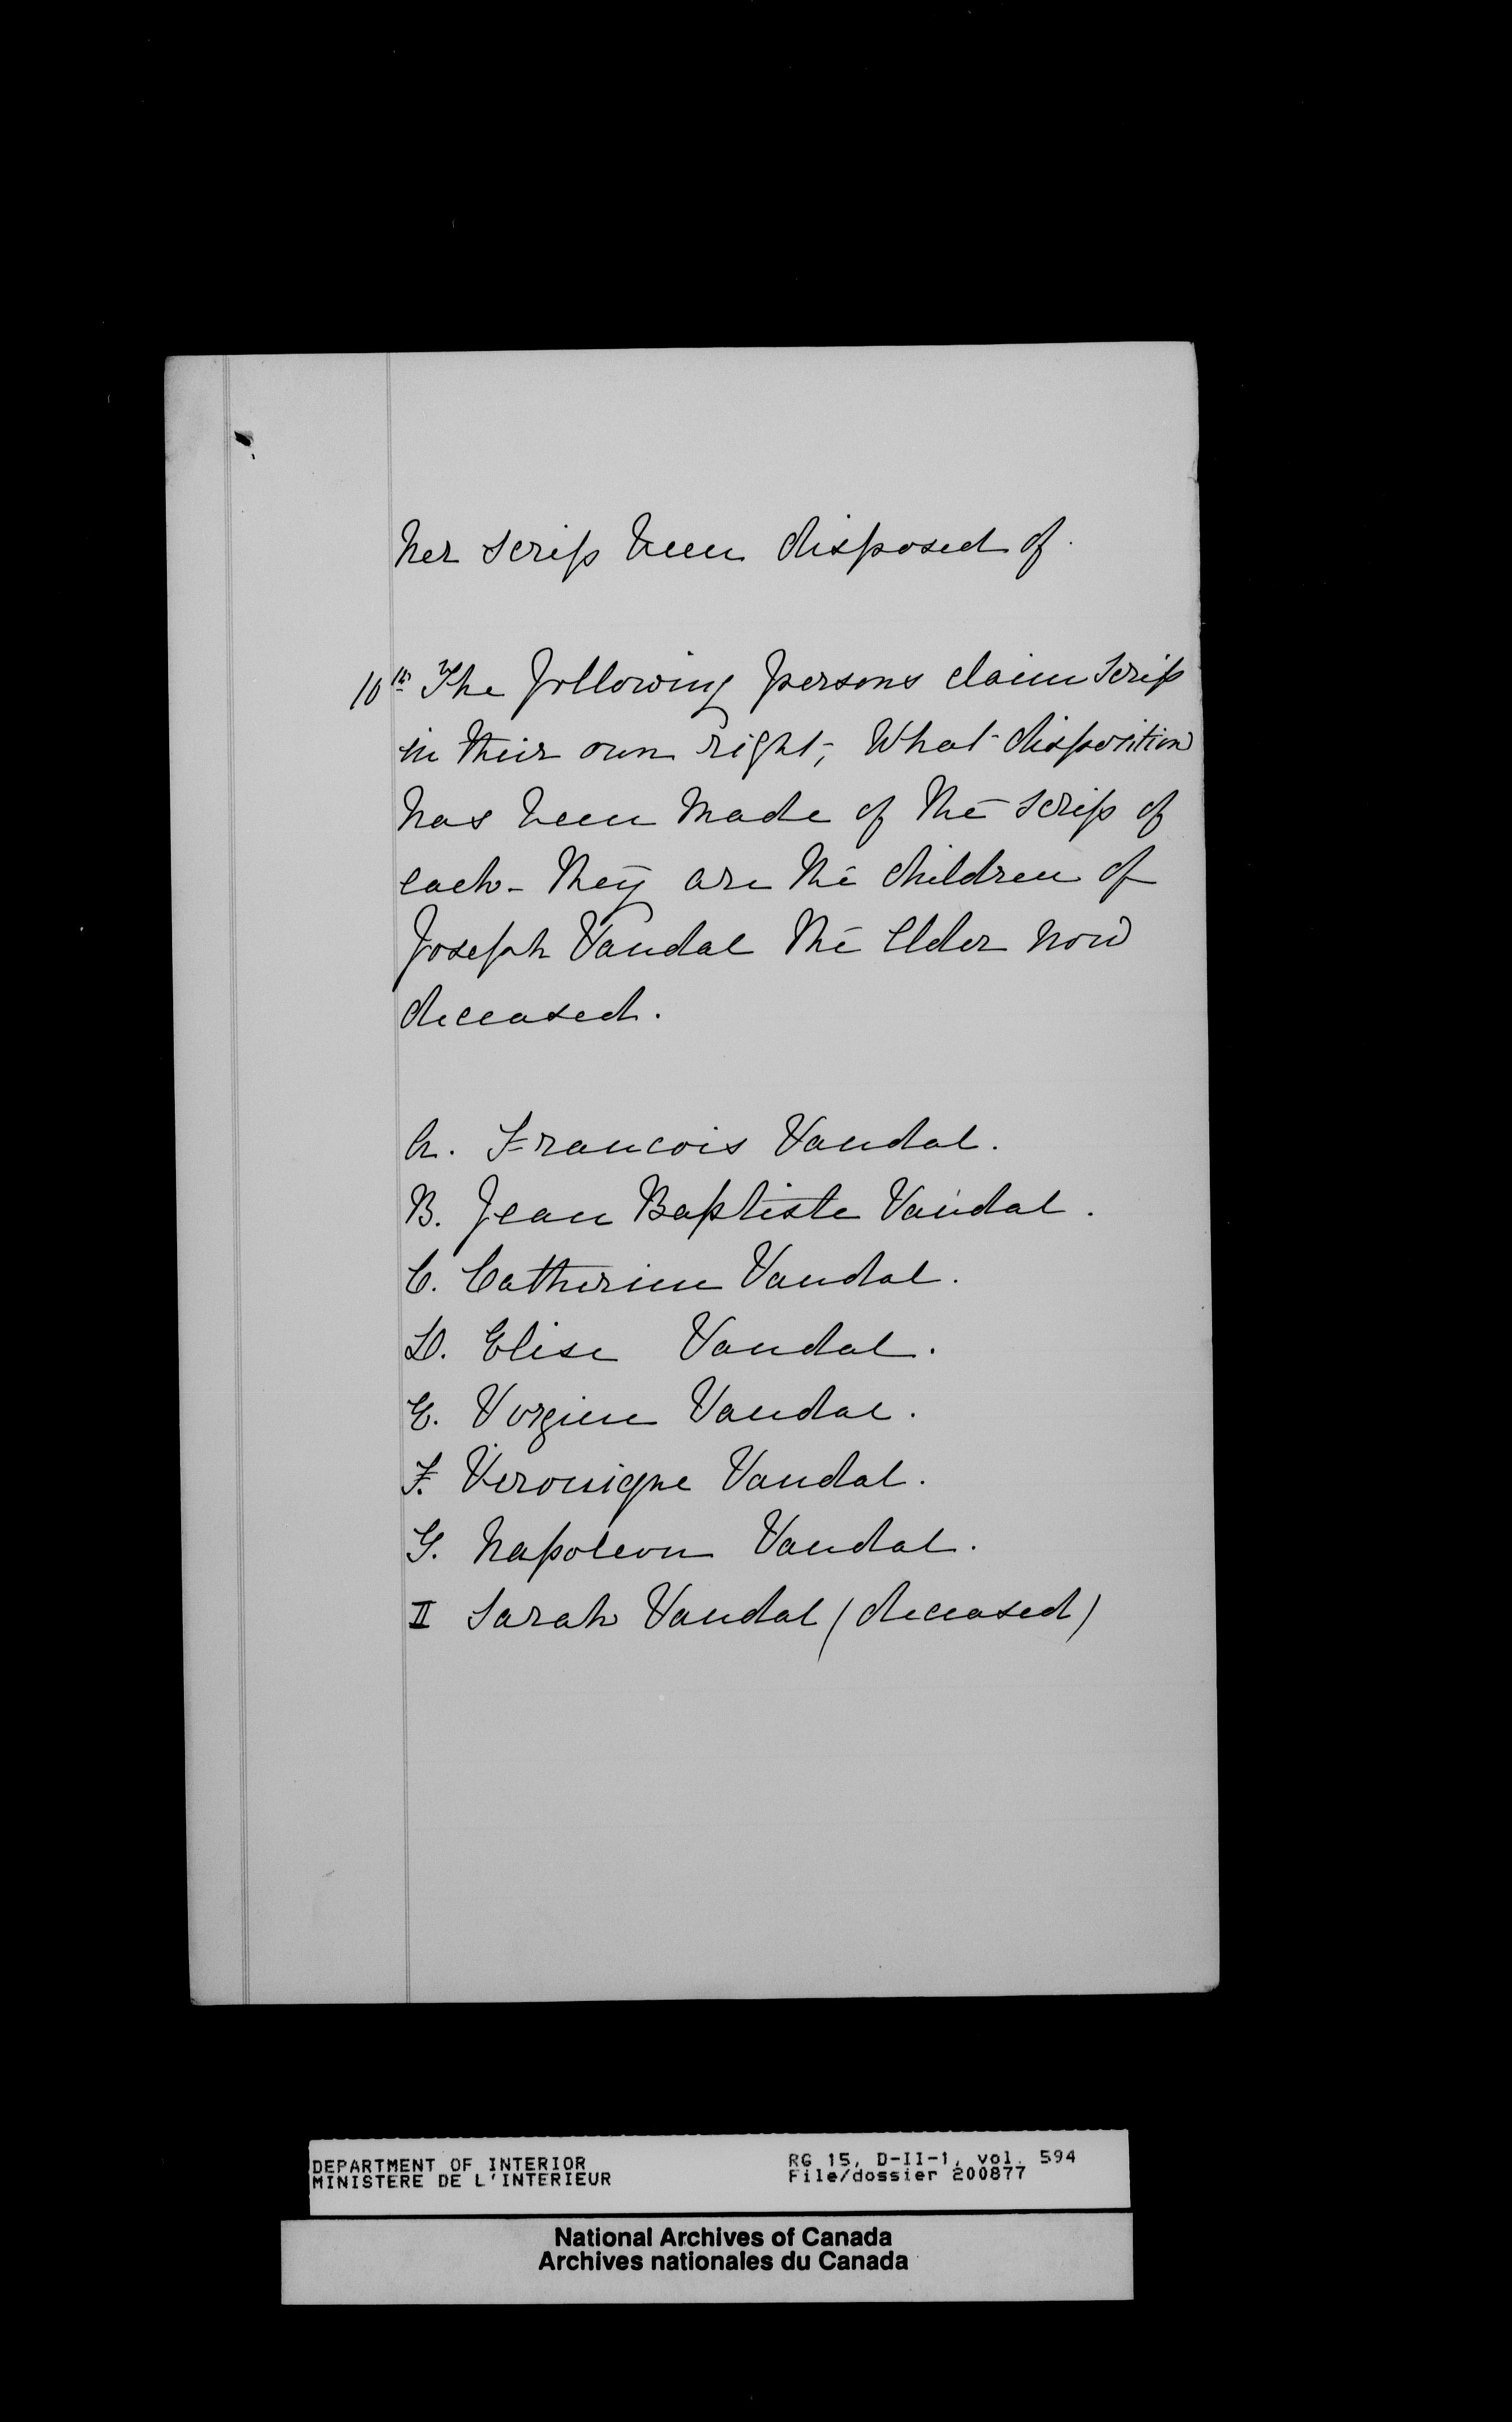 her scrip been disposed of.
10th The following persons claim scrip
in their own right; What disposition
has been made of the scrip of
each - they are the children of
Joseph Vandal the Elder now
deceased.
A. Francois Vandal.
B. Jean Baptiste Vandal.
C. Catherine Vandal.
D. Elise Vandal.
E. Virginie Vandal.
F. Veronique Vandal.
G. Napoleon Vandal.
H Sarah Vandal (deceased)
DEPARTMENT OF INTERIOR RG 15, D-II-1, vol. 594
MINISTERE DE L'INTERIEUR File/dossier 200877
National Archives of Canada
Archives nationales du Canada